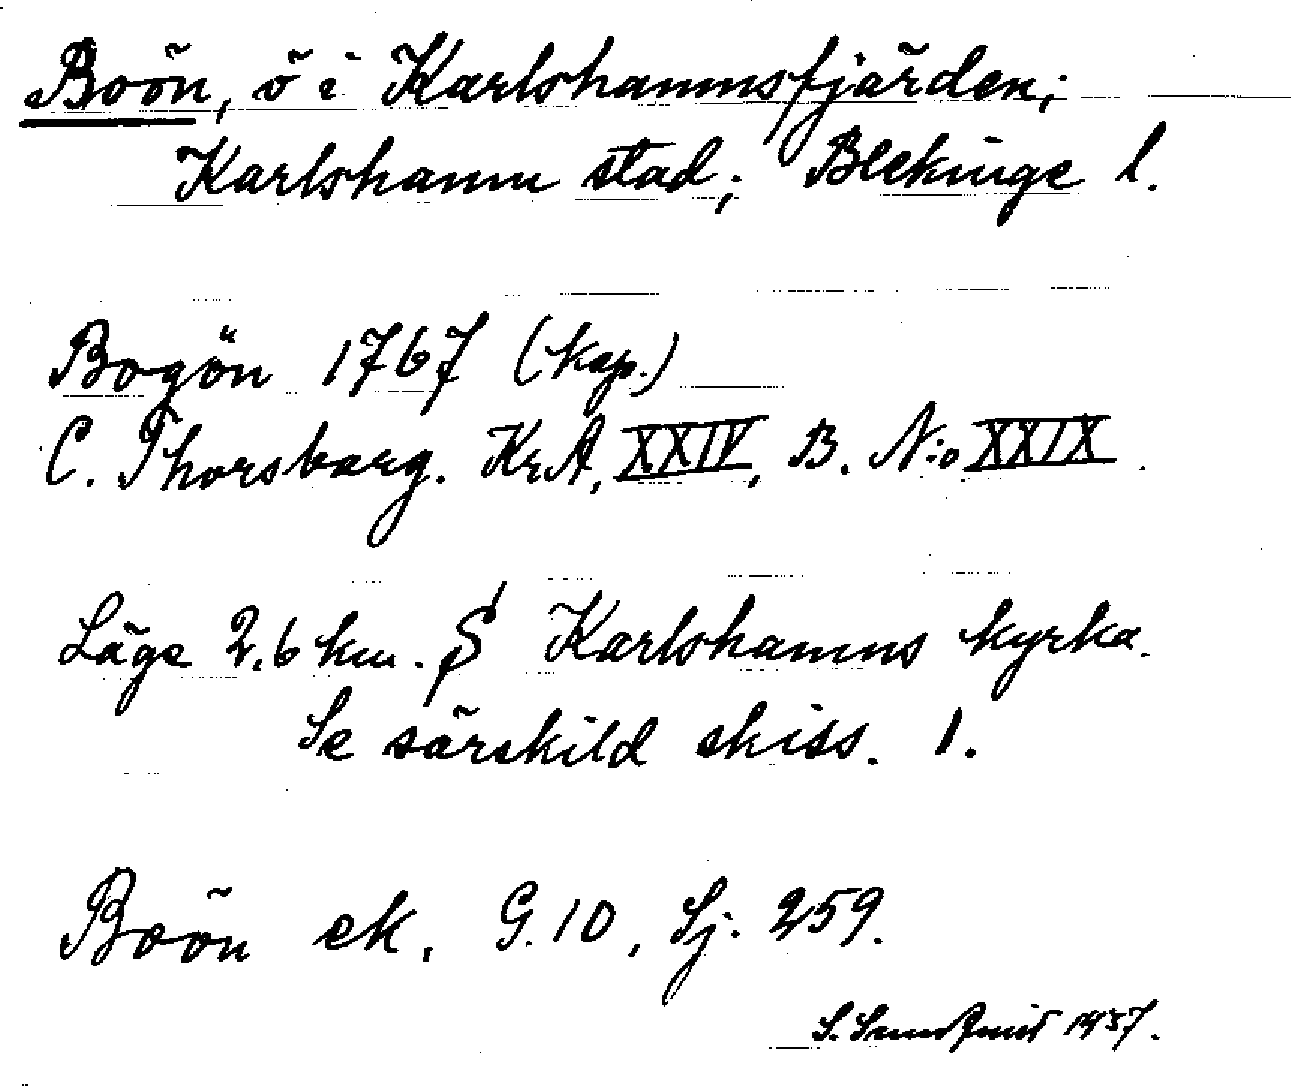 Boön, ö i Karlshamnsfjärden;
Karlshamn stad; Blekinge l.
Bogön 1767 (kop.)
C. Thorsbarg. KrA, XXIV, B. N:o XXIX.
Läge 2,6 km. S Karlshamns kyrka.
Se särskild skiss. 1.
Boön ek. G.10, Sj. 259.
S. Sundquist 1937.